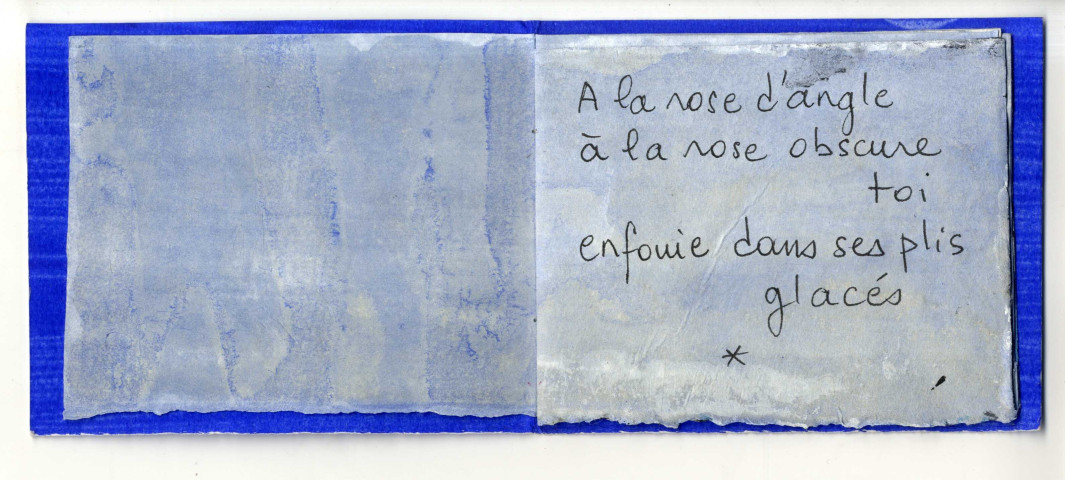 A la rose d'angle
à la rose obscure
toi
enfouie dans ses plis
glacés
*